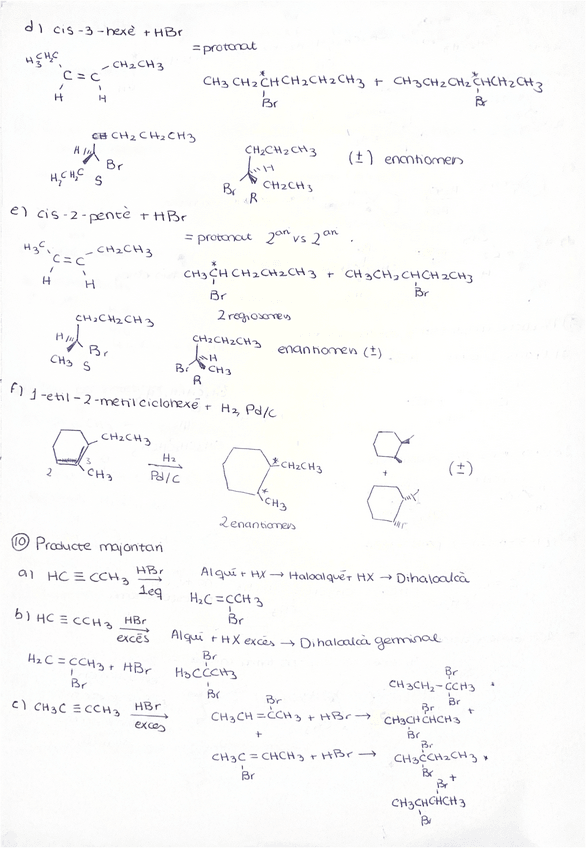 d) cis-3-hexè + HBr
= protonat
H3C H2C CH2CH3
C = C
H H
CH3CH2CHCH2CH2CH3 + CH3CH2CH2CHCH2CH3
* *
Br Br
CH2CH2CH3
H Br
H3C H2C S
CH2CH2CH3
H
Br CH2CH3
R
(±) enantiomers
e) cis-2-pentè + HBr
= protonat 2an vs 2an.
H3C CH2CH3
C = C
H H
CH3CHCH2CH2CH3 + CH3CH2CHCH2CH3
*
Br Br
2 regioisomers
CH2CH2CH3
H Br
CH3 S
CH2CH2CH3
H
Br CH3
R
enantiomers (±).
f) 1-etil-2-metilciclohexè + H2, Pd/C
CH2CH3
2 3 CH3
H2
Pd/C
* CH2CH3
* CH3
2 enantiomers
+
(±)
10 Producte majoritari
a) HC ≡ CCH3 HBr
1eq
Alquí + HX → Haloalquè + HX → Dihaloalcà
H2C = CCH3
Br
b) HC ≡ CCH3 HBr
excés
Alquí + HX excés → Dihaloalcà geminal
H2C = CCH3 + HBr
Br
Br
H3CCCH3
Br
c) CH3C ≡ CCH3 HBr
excés
Br
CH3CH = CCH3 + HBr →
+
CH3C = CHCH3 + HBr →
Br
Br
CH3CH2-CCH3 *
Br +
Br
CH3CHCHCH3
Br
Br
CH3CCH2CH3 *
Br
+
Br
CH3CHCHCH3
Br